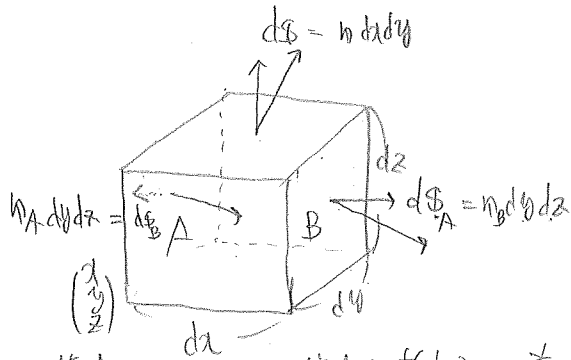 d𝕊 = 𝕟 dxdy
dz
𝕟_A dydz = d𝕊_B
A
B
d𝕊_A = 𝕟_B dydz
(x y z)
dy
dx